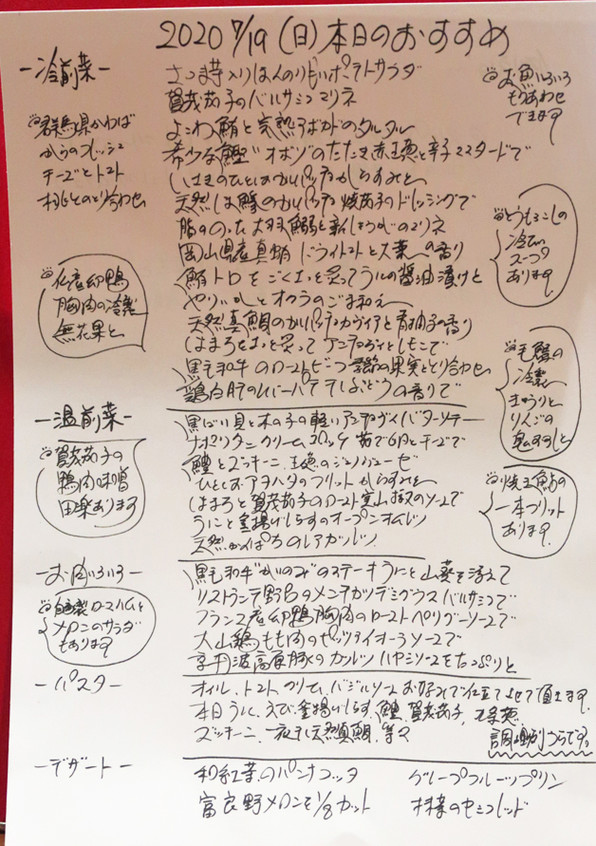 2020 7/19 (日) 本日のおすすめ
ー冷前菜ー
さつま芋入りほんのり甘いポテトサラダ
賀茂茄子のバルサミコマリネ
よこわ鮪と完熟アボカドのタルタル
希少な鰹"オボソ"のたたき 赤玉葱と辛子マスタードで
いさきのひとしおカルパッチョ からすみと
天然しま鯵のカルパッチョ 焼茄子のドレッシングで
脂ののった 大羽鰯と新しょうがのマリネ
岡山県産真蛸 ドライトマトと大葉の香り
鮪トロをごくさっと炙ってうにの醤油漬けと
やりいかとオクラのごま和え
天然真鯛のカルパッチョ キャヴィアと青柚子の香り
はまぐろをさっと炙って アンチョヴィとしそこで
黒毛和牛のローストビーフ 季節の果実ととり合わせ
鶏白肝のレバーパテ 干しぶどうの香りで
お魚いろいろ
もりあわせ
できます
群馬県かわば
からのフレッシュ
チーズとトマト
桃ととのとり合わせ
とうもろこしの
冷たい
スープ
あります
仏産鴨
胸肉の冷製
無花果と
毛蟹の
冷製
きゅうりと
りんごの
ー温前菜ー
黒ばい貝と木の子の軽いアンチョヴィバターソテー
ナポリタンクリームコロッケ 茹で卵とチーズで
鱧とズッキーニ 玉葱のジェノベーゼ
ひとしおアヲハタのフリット からすみと
はまぐろと賀茂茄子のロースト 実山椒のソースで
うにと釜揚げしらすのオープンオムレツ
天然かんぱちのレアカツレツ
賀茂茄子の
鴨肉味噌
田楽あります
一本フリット
あります
ーお肉いろいろー
黒毛和牛"かいのみ"のステーキ うにと山葵を添えて
リストランテ野呂のメンチカツ デミグラス バルサミコで
フランス産鴨胸肉のロースト ペリグーソースで
大山鶏もも肉のピッツァイオーラソースで
京丹波高原豚のカツレツ ハヤシソースをたっぷりと
自家製ロースハムと
メロンのサラダ
もあります
ーパスター
オイル、トマト、クリーム、バジルソース お好みで仕立てさせて頂きます。
本日 うに、えび、釜揚げしらす、鱧、賀茂茄子、玉葱
ズッキーニ、一夜干し天然真鯛、等々
ーデザートー
和紅茶のパンナコッタ
グレープフルーツプリン
富良野メロンを1/8カット
抹茶のセミフレッド